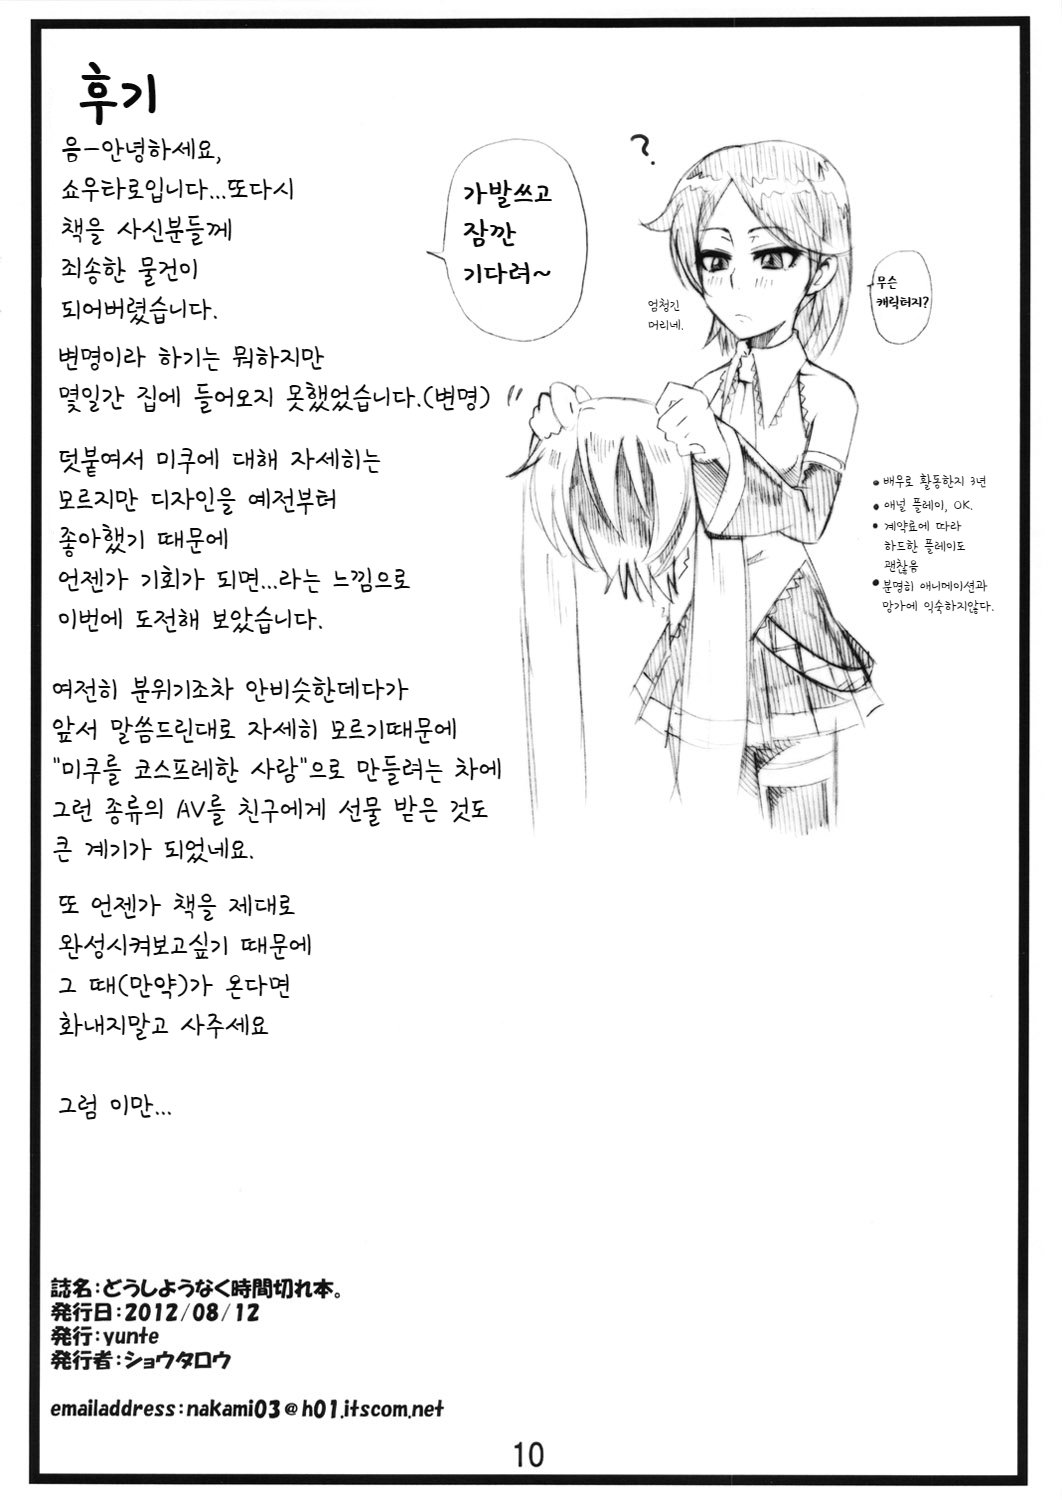 후기
음-안녕하세요,
쇼우타로입니다...또다시
책을 사신분들께
죄송한 물건이
되어버렸습니다.
변명이라 하기는 뭐하지만
몇일간 집에 들어오지 못했었습니다.(변명)
덧붙여서 미쿠에 대해 자세히는
모르지만 디자인을 예전부터
좋아했기 때문에
언젠가 기회가 되면...라는 느낌으로
이번에 도전해 보았습니다.
여전히 분위기조차 안비슷한데다가
앞서 말씀드린대로 자세히 모르기때문에
"미쿠를 코스프레한 사람"으로 만들려는 차에
그런 종류의 AV를 친구에게 선물 받은 것도
큰 계기가 되었네요.
또 언젠가 책을 제대로
완성시켜보고싶기 때문에
그 때(만약)가 온다면
화내지말고 사주세요
그럼 이만...
가발쓰고
잠깐
기다려~
?
엄청긴
머리네.
무슨
캐릭터지?
• 배우로 활동한지 3년
• 애널 플레이, OK.
• 계약료에 따라
하드한 플레이도
괜찮음
• 분명히 애니메이션과
망가에 익숙하지않다.
誌名:どうしようなく時間切れ本。
発行日:2012/08/12
発行:yunte
発行者:ショウタロウ
emailaddress:nakami03@h01.itscom.net
10